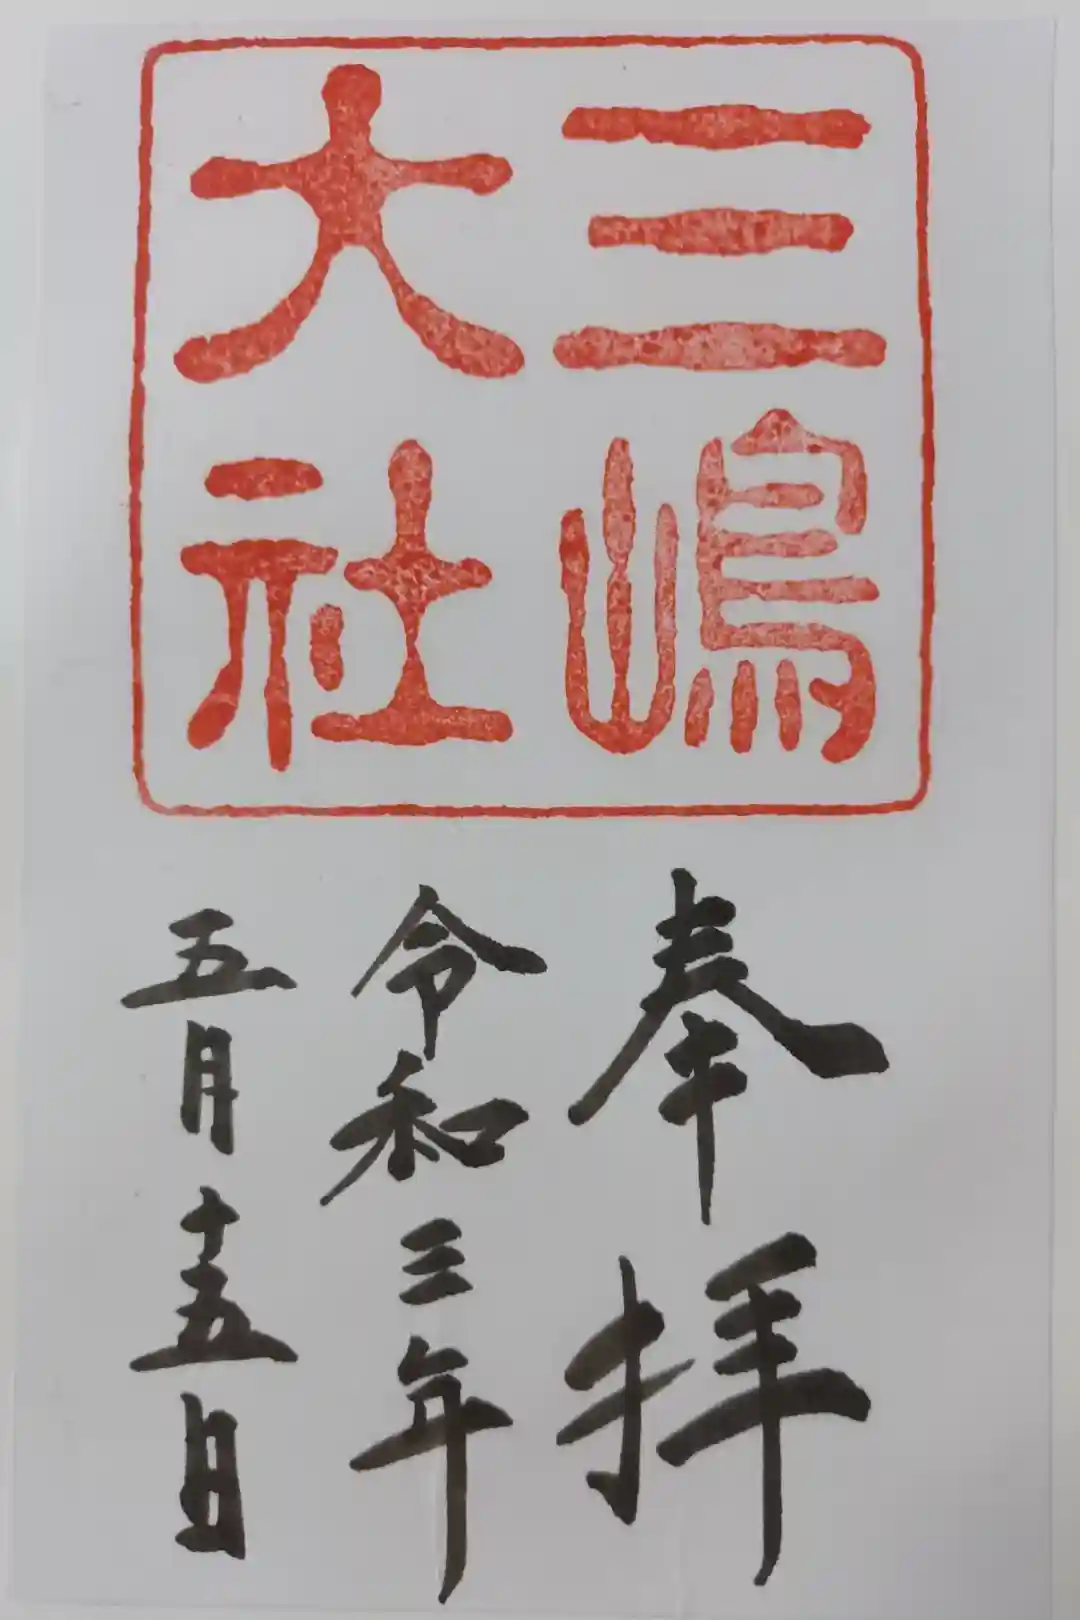 三嶋
大社
奉拝
令和三年
五月十五日